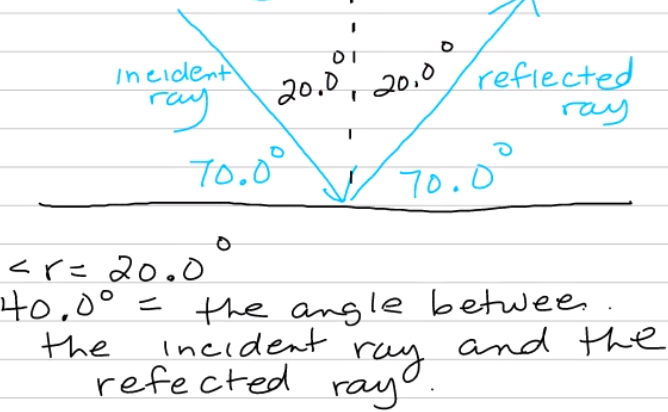 incident ray
20.0° 20.0°
reflected ray
70.0° 70.0°
<r = 20.0°
40.0° = the angle between
the incident ray and the
refected ray.